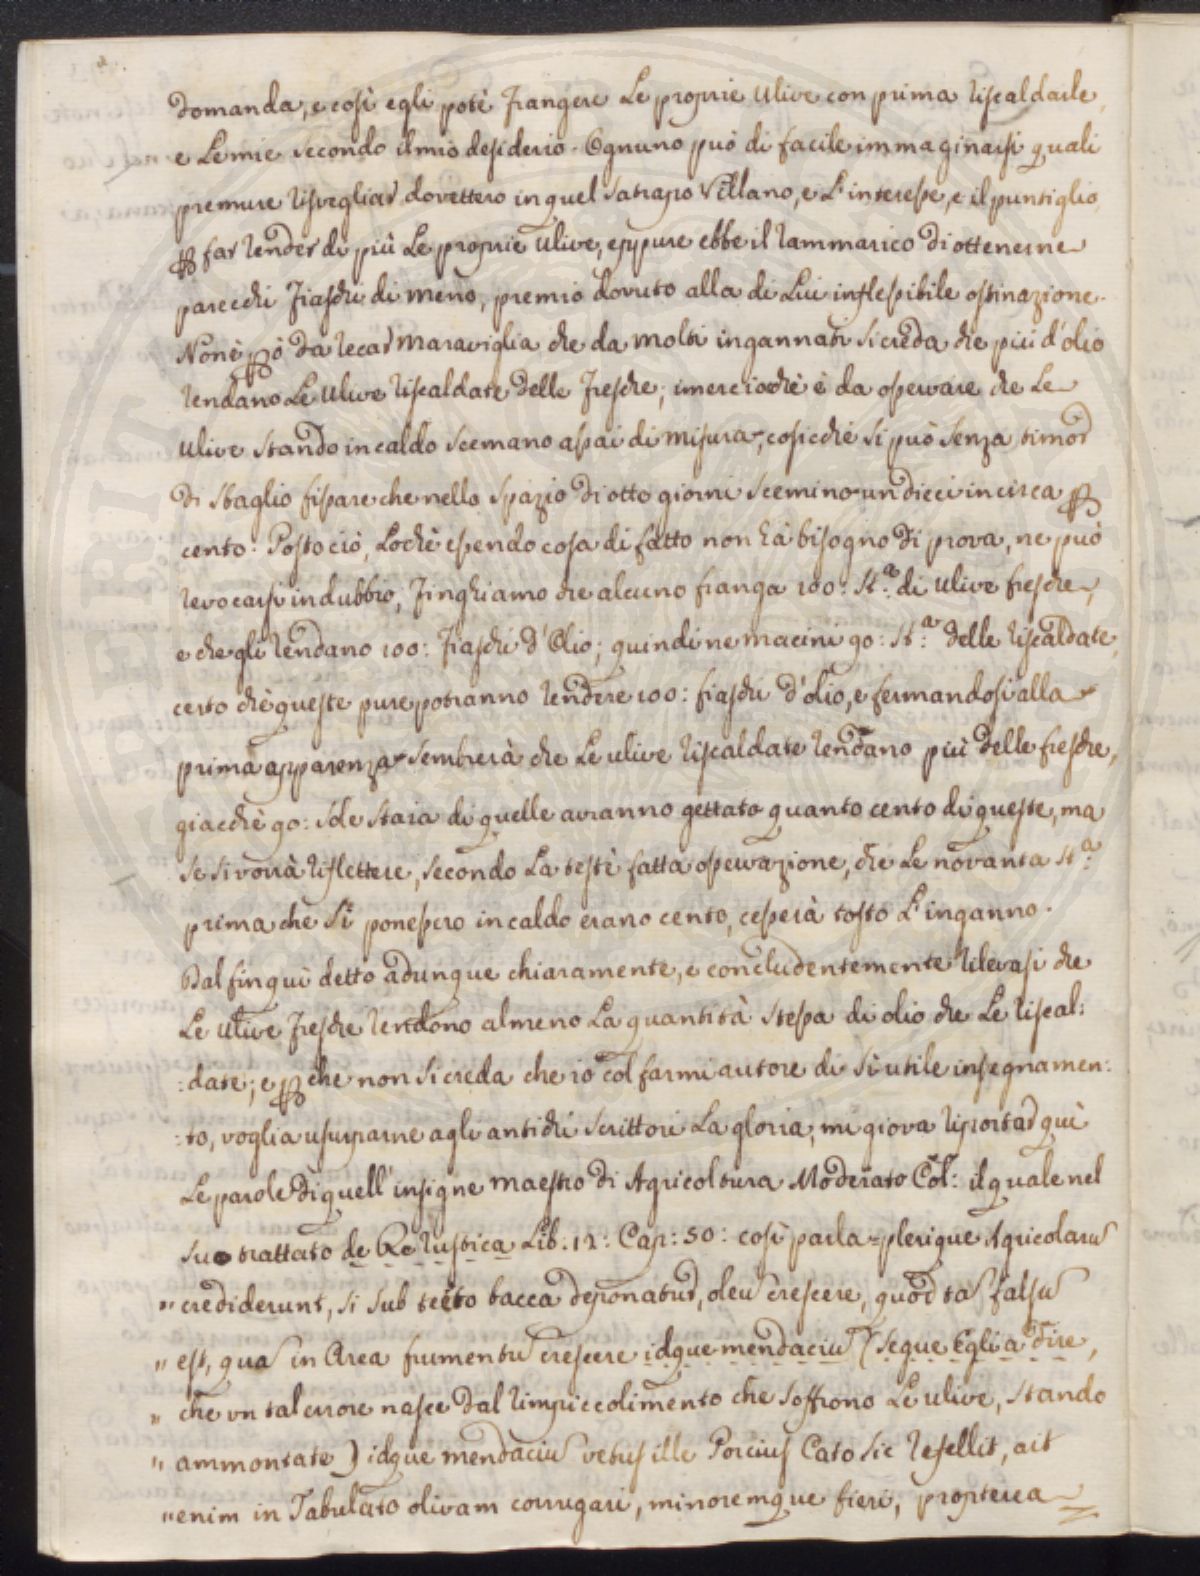 domanda, e così egli potè frangere Le proprie Ulive con prima riscaldarle,
e Le mie secondo il mio desiderio. Ognuno può di facile immaginarsi quali
premure risvegliar dovettero in quel Satrapo Villano, e L'interesse, e il puntiglio,
ꝑ far render di più Le proprie Ulive, eppure ebbe il rammarico di ottenerne
parecchi fiaschi di meno, premio dovuto alla di Lui inflessibile ostinazione.
Non è ꝑò da recar maraviglia che da molti ingannati si creda che più d'olio
rendano Le Ulive riscaldate delle fresche; imerciochè è da osservare che Le
Ulive stando in caldo scemano assai di misura, cosicchè si può senza timor
di sbaglio fissare che nello spazio di otto giorni scemino un dieci incirca ꝑ
cento: Posto ciò, Lochè essendo cosa di fatto non hà bisogno di prova, ne può
revocarsi in dubbio, finghiamo che alcuno franga 100: St.ª di Ulive fresche,
e che gli rendano 100: fiaschi d'Olio; quindi ne macini 90: St.ª delle riscaldate,
certo ch'è queste pure potranno rendere 100: fiaschi d'olio, e fermandosi alla
prima apparenza sembrerà che Le ulive riscaldate rendano più delle fresche,
giacchè 90: sole staia di quelle avranno gettato quanto cento di queste, ma
se si vorrà riflettere, secondo La testè fatta osservazione, che Le novanta St.ª
prima che si ponessero in caldo erano cento, cesserà tosto L'inganno.
Dal fin qui detto adunque chiaramente, e concludentemente rilevasi che
Le Ulive fresche rendono almeno La quantità stessa di olio che Le riscal:
:date; e ꝑchè non si creda che io col farmi autore di sì utile insegnamen:
:to, voglia usurparne agli antichi Scrittori La gloria, mi giova riportar quì
Le parole di quell'insigne maestro di Agricoltura Moderato Col: il quale nel
suo trattato de Re rustica Lib. 12: Cap: 50: così parla = plerique Agricolarũ
" crediderunt, si sub tecto bacca deponatur, oleũ crescere, quod tã falsũ
" est, quã in Area frumentũ crescere idque mendaciũ (segue Egli a dire,
" che un tal errore nasce dal rimpiccolimento che soffrono Le ulive, stando
" ammontate) idque mendaciũ vetus ille Porcius Cato sic refellit, ait
" enim in Tabulato olivam corrugari, minoremque fieri, propterea